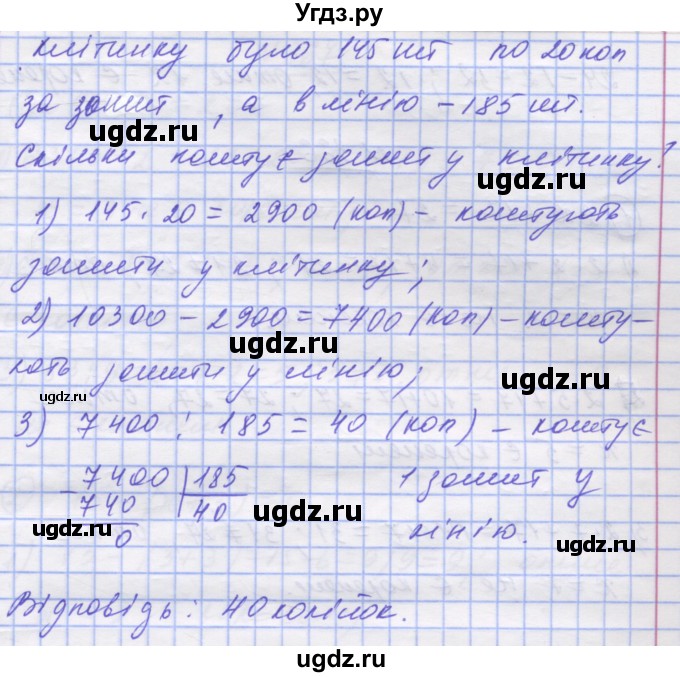 Угдз.ру
клітинку було 145 шт по 20 коп
за зошит, а в лінію – 185 шт.
ugdz.ru ugdz.ru
Скільки коштує зошит у клітинку?
ugdz.ru
1) 145 · 20 = 2900 (коп) – коштують
зошити у клітинку;
ugdz.ru
2) 10300 – 2900 = 7400 (коп) – кошту-
ugdz.ru
ють зошити у лінію;
ugdz.ru ugdz.ru
3) 7400 : 185 = 40 (коп) – коштує
7400 | 185 1 зошит у
740 40 лінію.
ugdz.ru ugdz.ru ugdz.ru
0
Відповідь: 40 копійок.
ugdz.ru
ugdz.ru